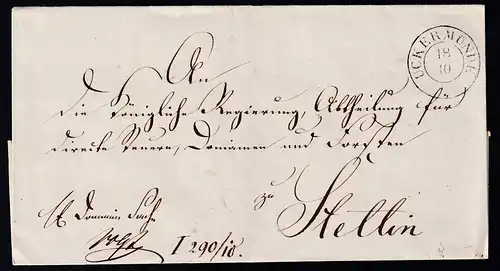 UCKERMÜNDE
18
10
An
die Königliche Regierung, Abtheilung für
directe Steuern, Domainen und Forsten
zu
Stettin
Domainen Sache
I 290/10.